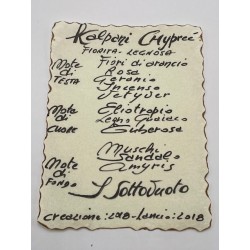 Kalponi Chypreé
FIORITA - LEGNOSA
Note Di TESTA
Fiori d'arancio
Rosa
Geranio
Incenso
Vetyver
Note Di CUORE
Eliotropio
Legno Guaiaco
Tuberosa
Note Di FONDO
Muschi
Sandalo
Amyris
I Sottovuoto
Creazione: 2018 - Lancio: 2018